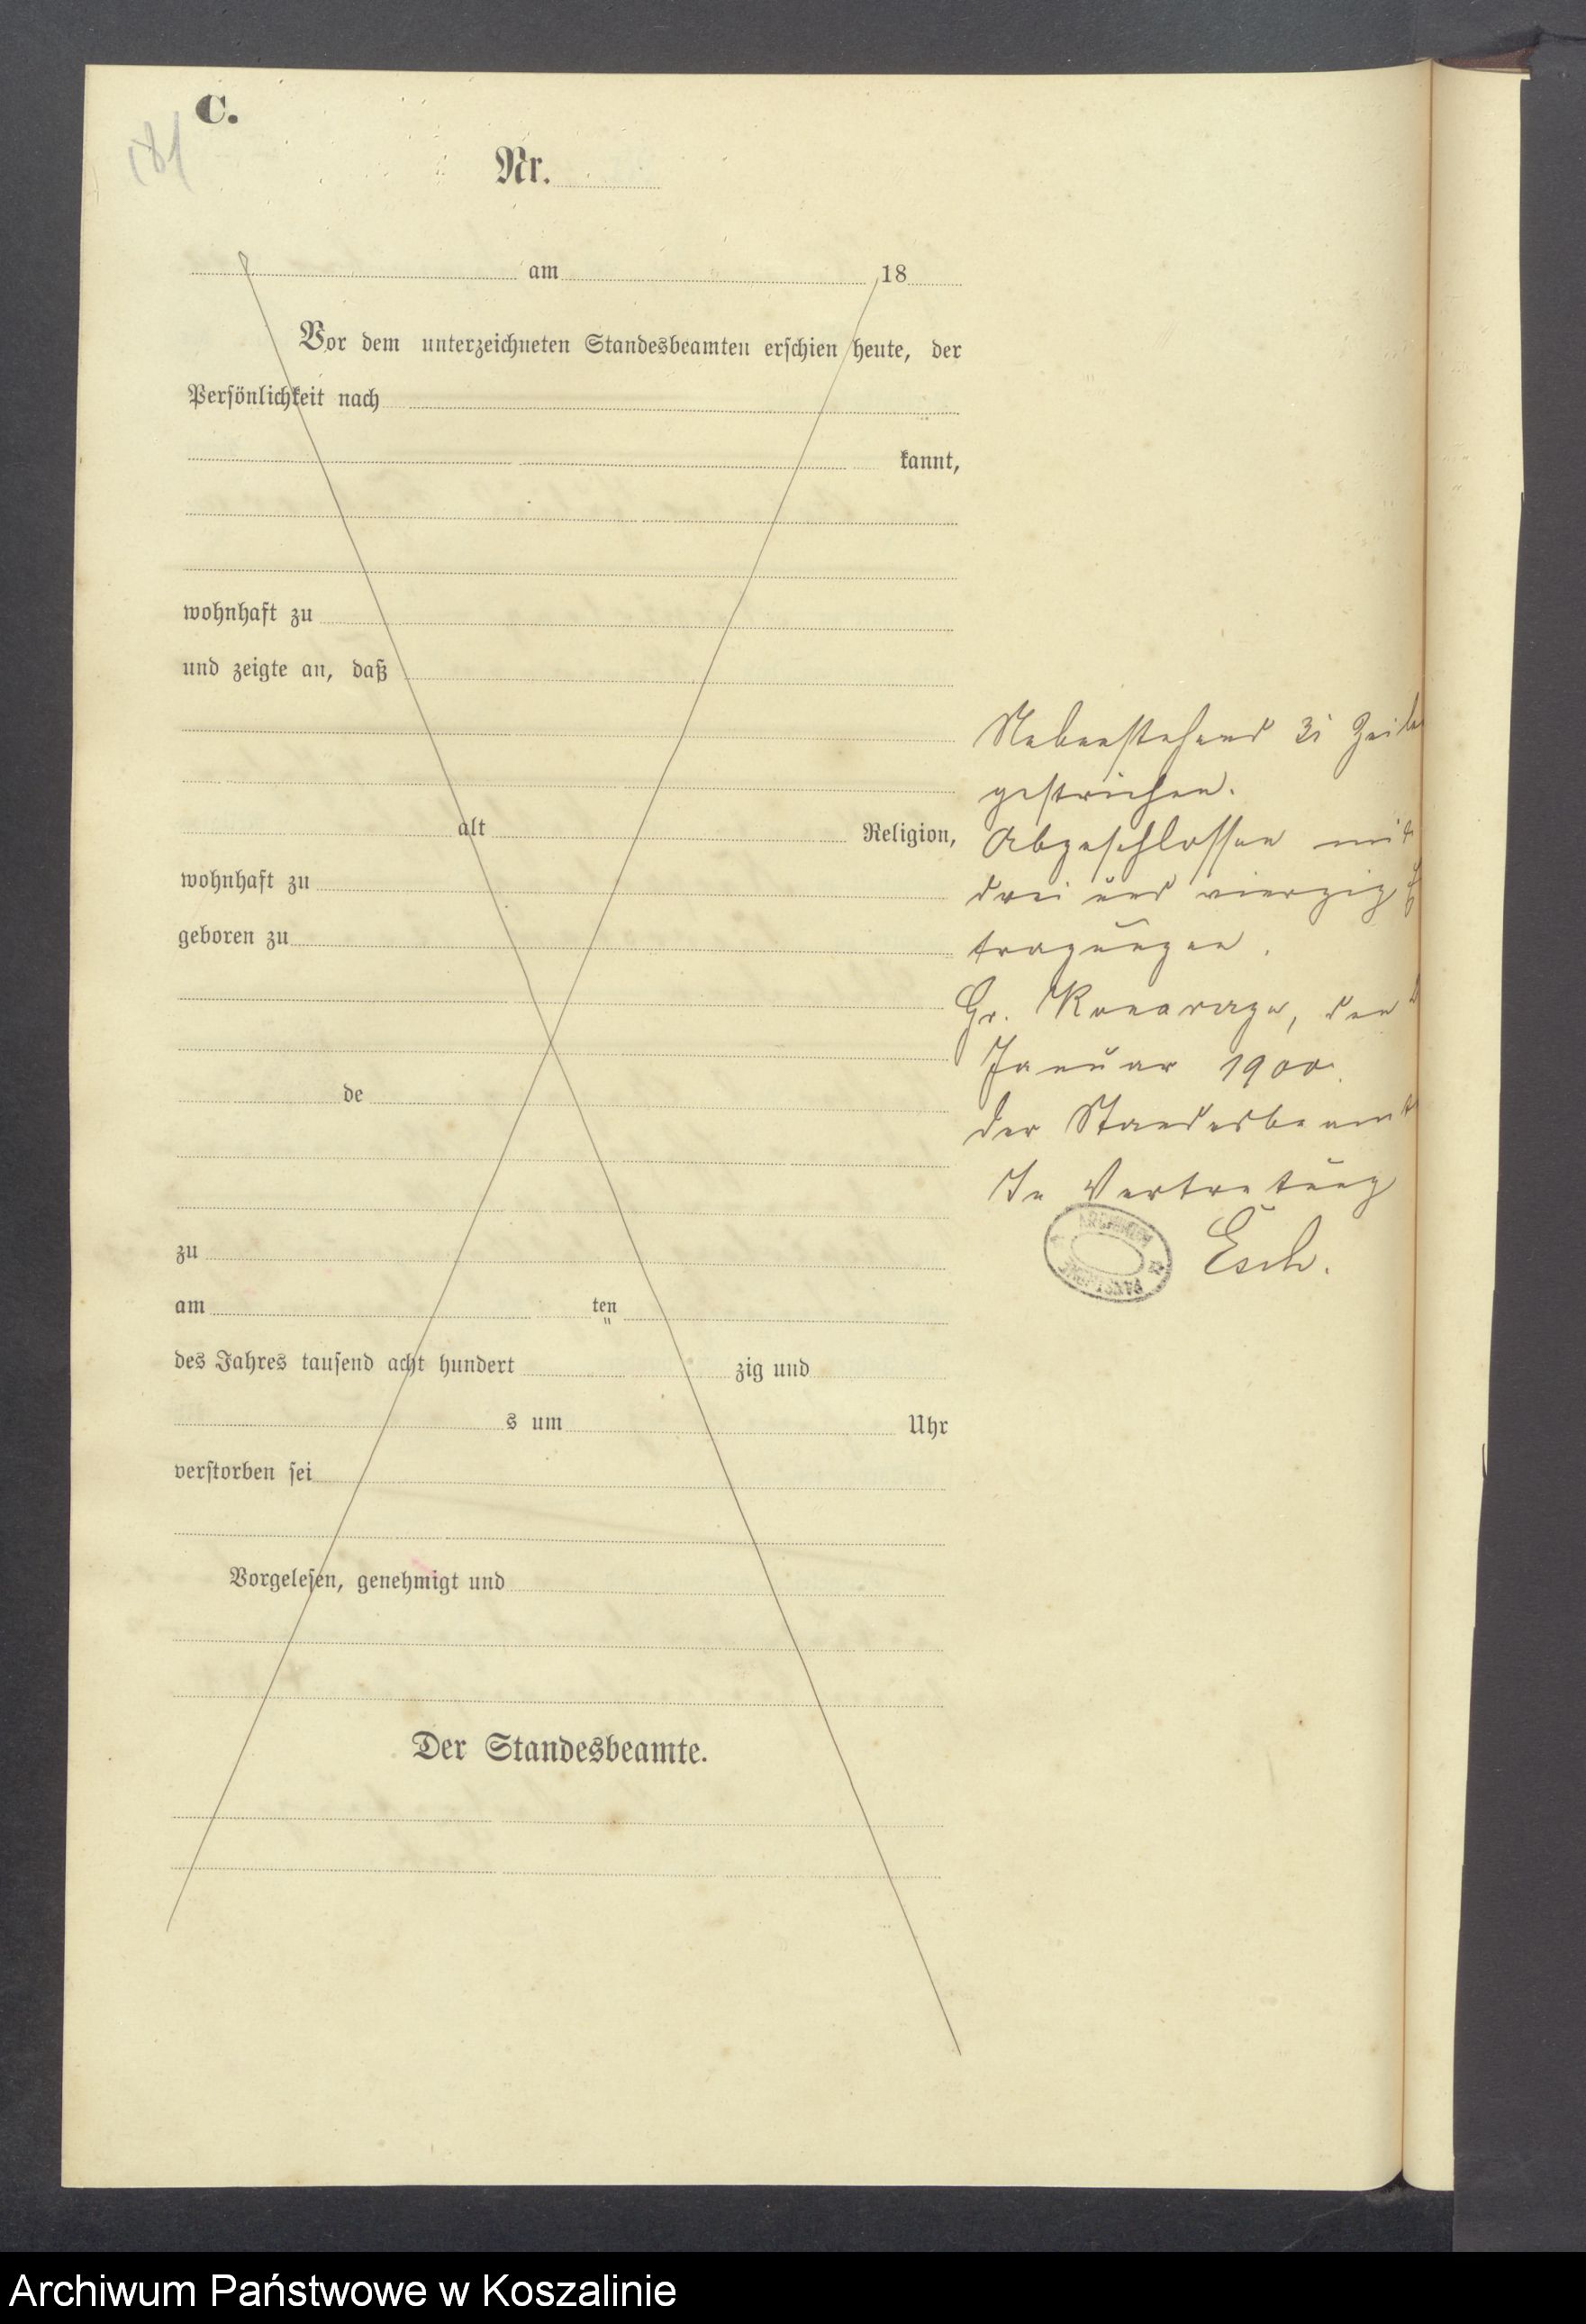 C.
181
Nr.
am 18
Vor dem unterzeichneten Standesbeamten erschien heute, der
Persönlichkeit nach
kannt,
wohnhaft zu
und zeigte an, daß
alt Religion,
wohnhaft zu
geboren zu
de
zu
am ten
des Jahres tausend acht hundert zig und
s um Uhr
verstorben sei
Vorgelesen, genehmigt und
Der Standesbeamte.
Nebenstehend 31 Zeile
gestrichen.
Abgeschlossen mit
drei und vierzig
tragungen.
Gr. Konarzyn, den
Januar 1900.
Der Standesbeamt
In Vertretung
Esch.
ARCHIWUM
Archiwum Państwowe w Koszalinie